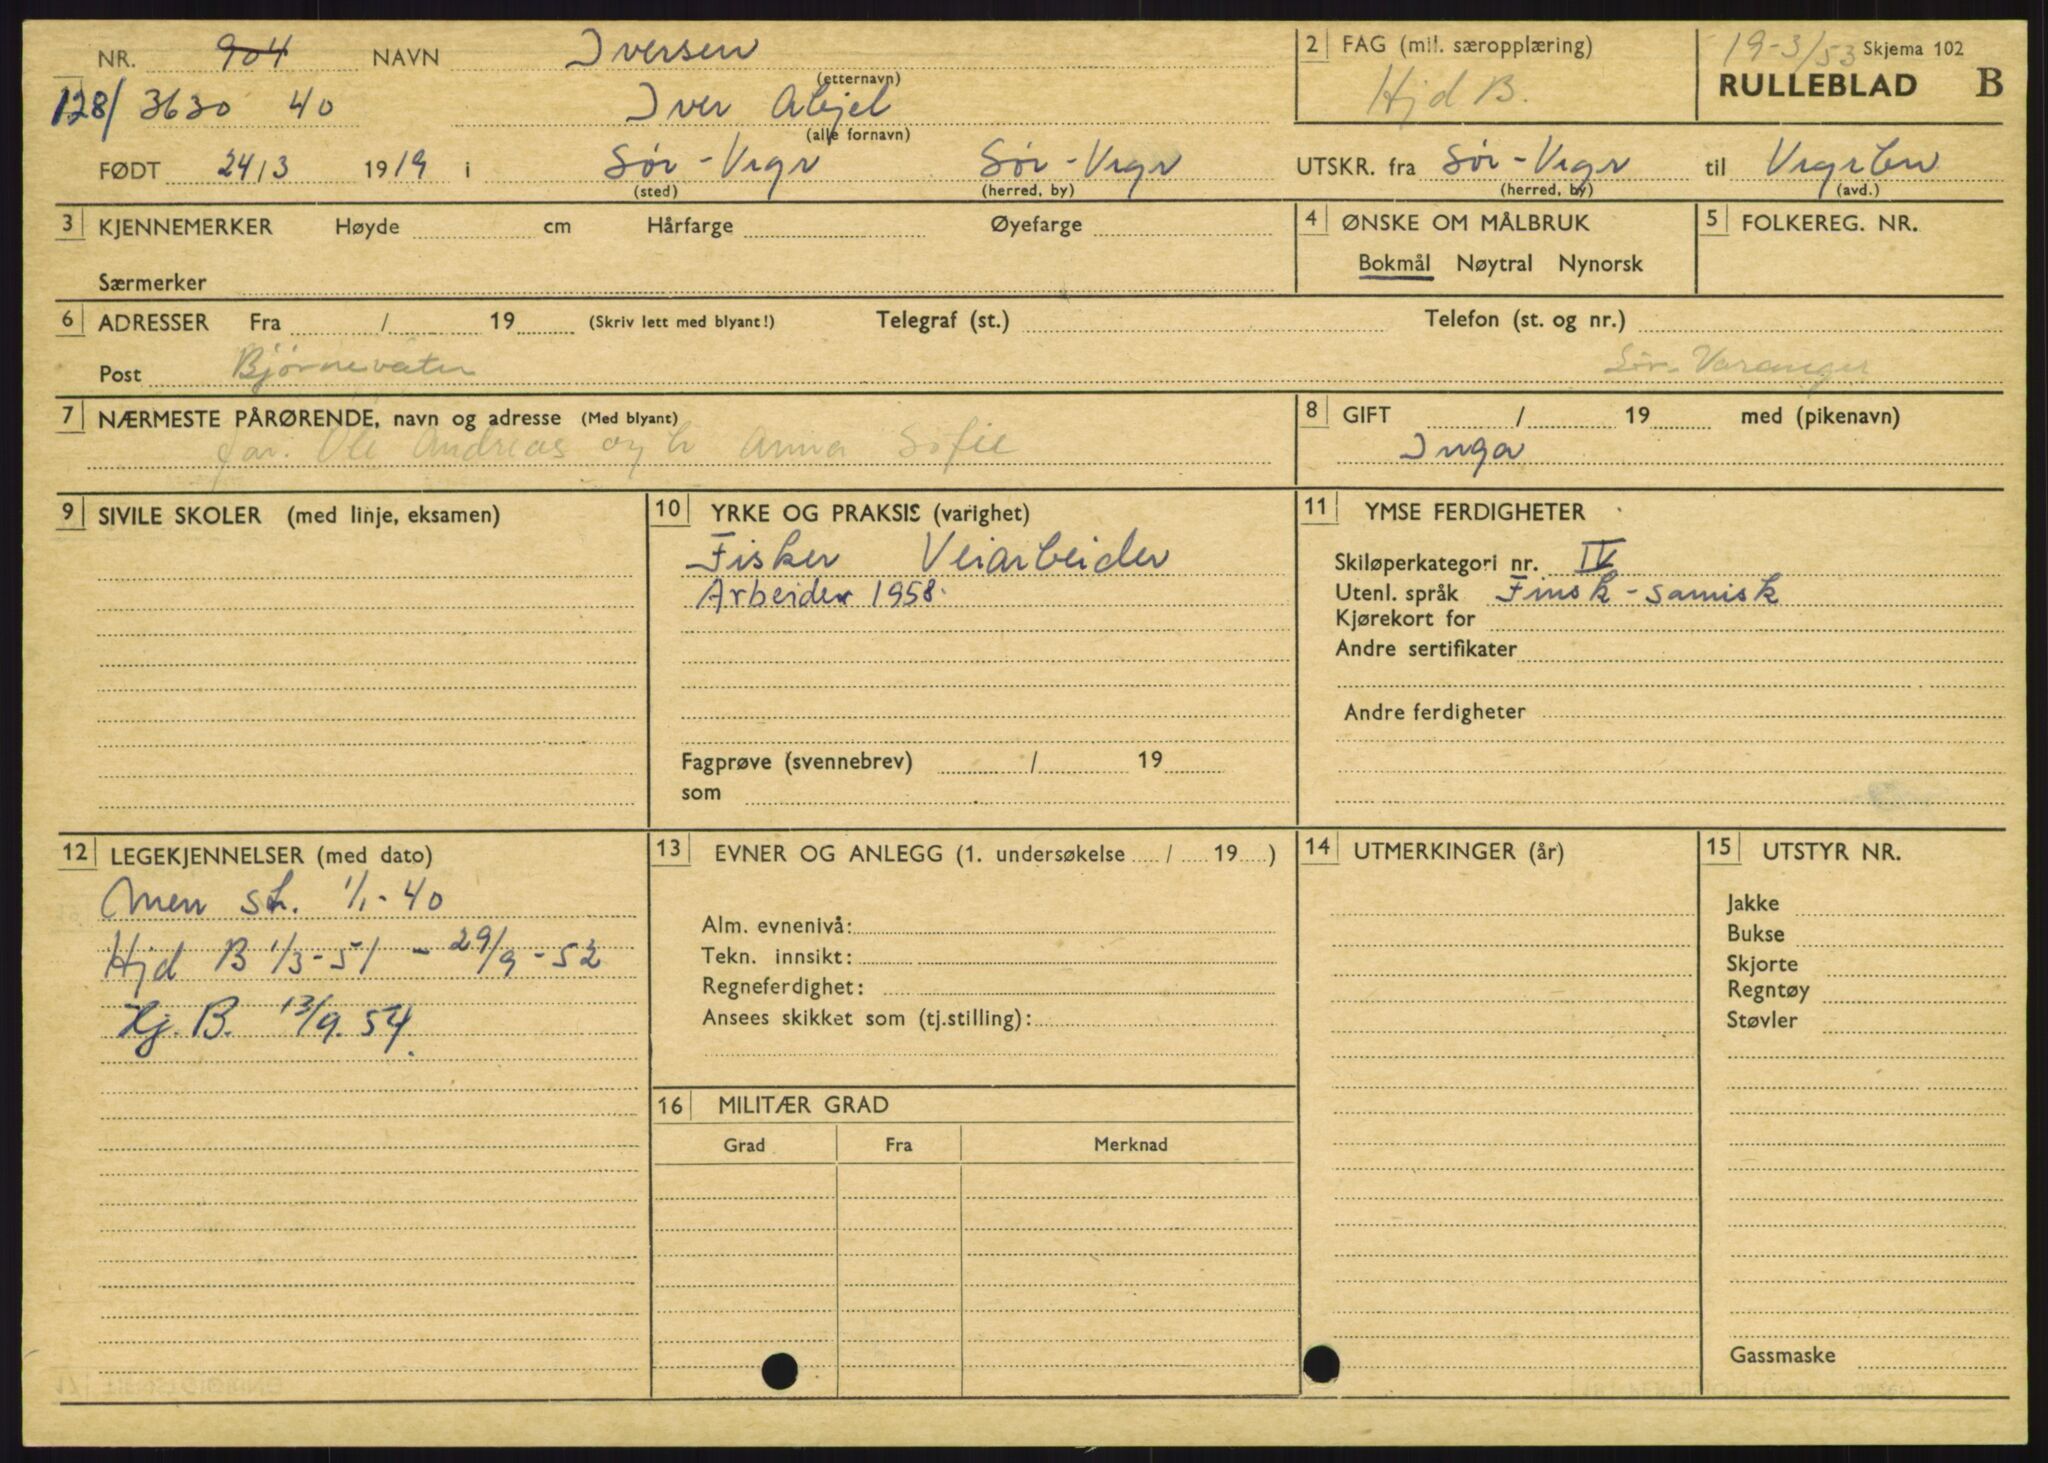 NR. 904 NAVN Iversen
(etternavn)
128/ 3630 40 Iver Abjel
(alle fornavn)
FØDT 24/3 1919 i Sør-Vrgr Sør-Vrgr
(sted) (herred, by)
2 FAG (mil. særopplæring)
Hjd B.
19-3/53 Skjema 102
RULLEBLAD B
UTSKR. fra Sør-Vrgr til Vrgrbn
(herred, by) (avd.)
3 KJENNEMERKER Høyde cm Hårfarge Øyefarge
Særmerker
4 ØNSKE OM MÅLBRUK
Bokmål Nøytral Nynorsk
5 FOLKEREG. NR.
6 ADRESSER Fra / 19 (Skriv lett med blyant!) Telegraf (st.) Telefon (st. og nr.)
Post Bjørnevatn Sør-Varanger
7 NÆRMESTE PÅRØRENDE, navn og adresse (Med blyant)
far. Ole Andreas og h Anna Sofie
8 GIFT / 19 med (pikenavn)
Inga
9 SIVILE SKOLER (med linje, eksamen)
10 YRKE OG PRAKSIS (varighet)
Fisker Veiarbeider
Arbeider 1958.
Fagprøve (svennebrev) / 19
som
11 YMSE FERDIGHETER
Skiløperkategori nr. IV
Utenl. språk Finsk-samisk
Kjørekort for
Andre sertifikater
Andre ferdigheter
12 LEGEKJENNELSER (med dato)
Men st. 1/1-40
Hjd B 1/3-51 - 29/9-52
Hj. B. 13/9.54.
13 EVNER OG ANLEGG (1. undersøkelse / 19 )
Alm. evnenivå:
Tekn. innsikt:
Regneferdighet:
Ansees skikket som (tj.stilling):
14 UTMERKINGER (år)
15 UTSTYR NR.
Jakke
Bukse
Skjorte
Regntøy
Støvler
Gassmaske
16 MILITÆR GRAD
Grad Fra Merknad